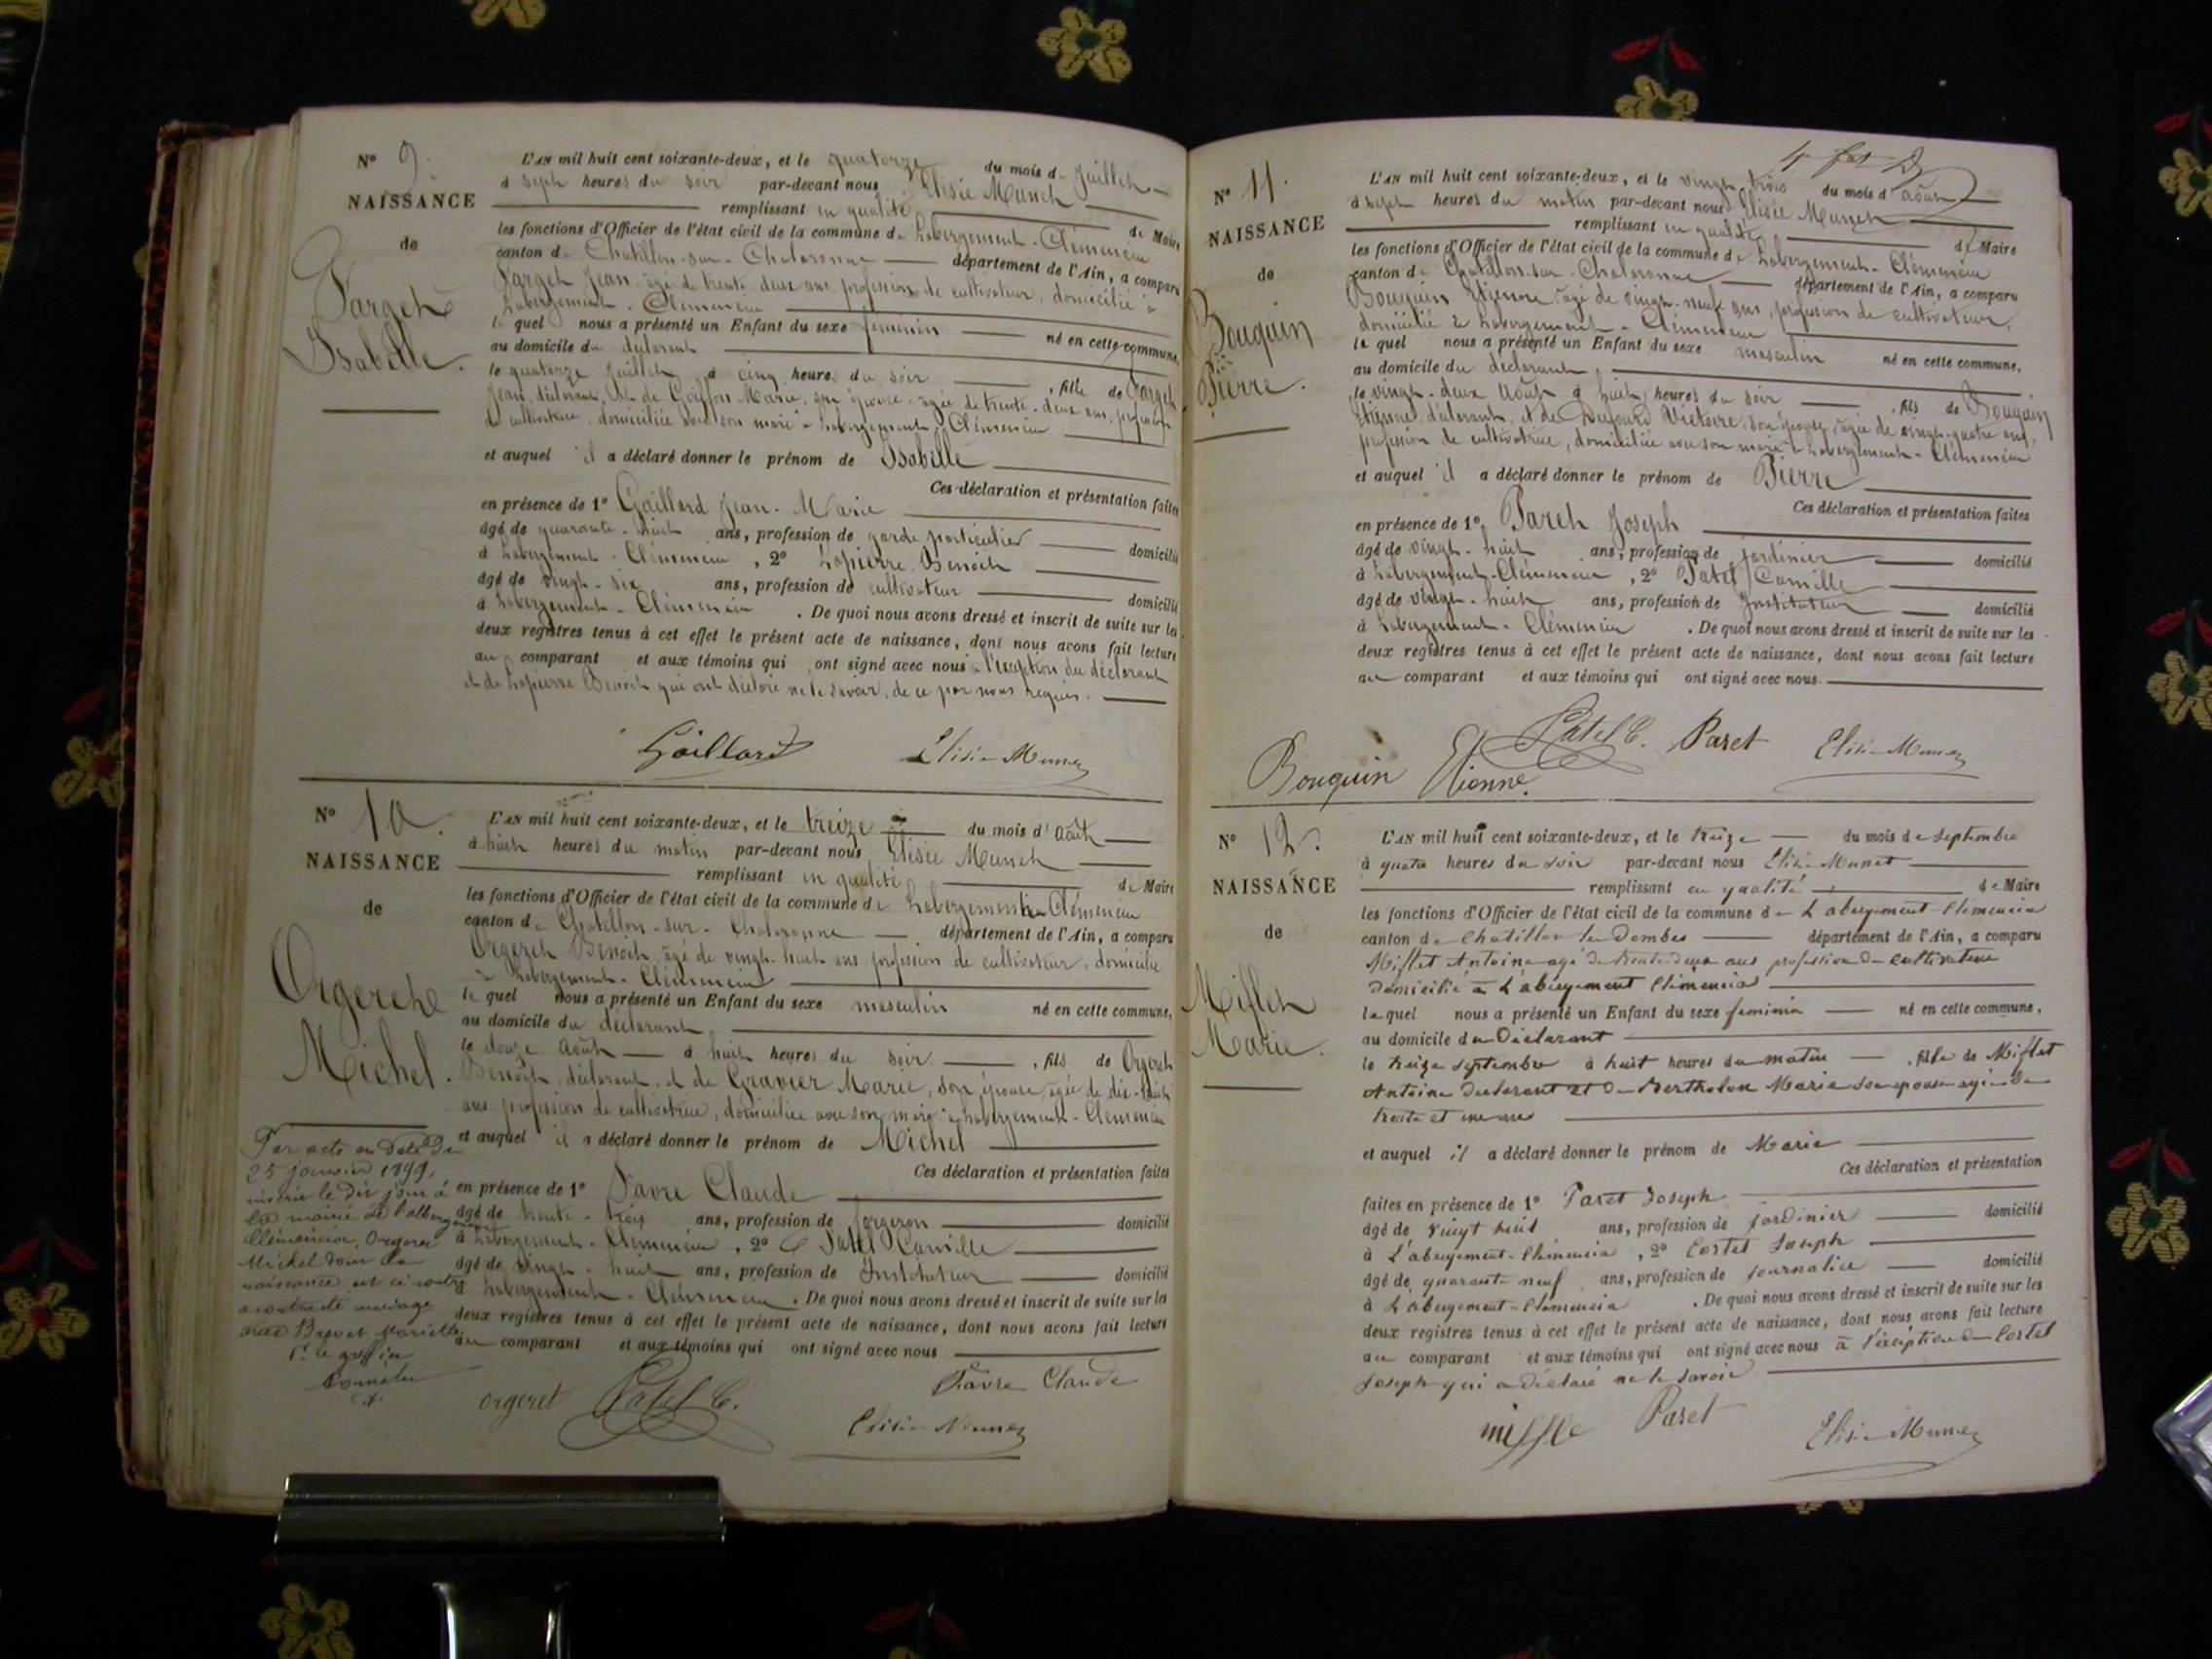 N° 9.
NAISSANCE
de
Farget
Isabelle.
L'AN mil huit cent soixante-deux, et le quatorze du mois de Juillet
à sept heures du soir par-devant nous Elisée Munet
remplissant en qualité de Maire
les fonctions d'Officier de l'état civil de la commune de Labergement-Clémencia
canton de Chatillon-sur-Chalaronne département de l'Ain, a comparu
Farget Jean, agé de trente-deux ans, profession de cultivateur, domicilié à
Labergement-Clémencia
le quel nous a présenté un Enfant du sexe féminin né en cette commune,
au domicile du déclarant
le quatorze Juillet à cinq heures du soir , fille de Farget
Jean, déclarant, et de Marie, son épouse, agée de trente-deux ans, profession
de cultivatrice, domiciliée avec son mari à Labergement-Clémencia
et auquel il a déclaré donner le prénom de Isabelle
Ces déclaration et présentation faites
en présence de 1° Gaillard Jean-Marie
âgé de quarante-huit ans, profession de garde particulier domicilié
à Labergement-Clémencia , 2° Lapierre Benoit
âgé de vingt-six ans, profession de cultivateur domicilié
à Labergement-Clémencia . De quoi nous avons dressé et inscrit de suite sur les
deux registres tenus à cet effet le présent acte de naissance, dont nous avons fait lecture
au comparant et aux témoins qui ont signé avec nous à l'exception du déclarant
et de Lapierre Benoit qui ont déclaré ne le savoir, de ce par nous requis.
Gaillard Elisée Munet
N° 10.
NAISSANCE
de
Orgeret
Michel.
L'AN mil huit cent soixante-deux, et le treize du mois d'Août
à huit heures du matin par-devant nous Elisée Munet
remplissant en qualité de Maire
les fonctions d'Officier de l'état civil de la commune de Labergement Clémencia
canton de Chatillon-sur-Chalaronne département de l'Ain, a comparu
Orgeret Benoit, agé de vingt-huit ans, profession de cultivateur, domicilié
à Labergement-Clémencia
le quel nous a présenté un Enfant du sexe masculin né en cette commune,
au domicile du déclarant
le douze Août à huit heures du soir , fils de Orgeret
Benoit, déclarant, et de Gravier Marie, son épouse, agée de dix-huit
ans profession de cultivatrice, domiciliée avec son mari à Labergement-Clémencia
et auquel il a déclaré donner le prénom de Michel
Ces déclaration et présentation faites
en présence de 1° Favre Claude
âgé de trente-trois ans, profession de forgeron domicilié
à Labergement-Clémencia , 2° Patel Camille
âgé de vingt-huit ans, profession de Instituteur domicilié
à Labergement-Clémencia . De quoi nous avons dressé et inscrit de suite sur les
deux registres tenus à cet effet le présent acte de naissance, dont nous avons fait lecture
au comparant et aux témoins qui ont signé avec nous
orgeret Patel C. Favre Claude
Elisée Munet
Par acte en date du
25 janvier 1899,
inscrit le dit jour à
la mairie de l'abergement
Clémencia, Orgeret
Michel dont la
naissance est ci contre
a contracté mariage
avec Brevet Mariette
Pr le greffier
N° 11.
NAISSANCE
de
Bouquin
Pierre.
L'AN mil huit cent soixante-deux, et le vingt trois du mois d'août
à sept heures du matin par-devant nous Elisée Munet
remplissant en qualité de Maire
les fonctions d'Officier de l'état civil de la commune de Labergement-Clémencia
canton de Chatillon-sur-Chalaronne département de l'Ain, a comparu
Bouquin Etienne, agé de vingt-neuf ans, profession de cultivateur,
domicilié à Labergement-Clémencia
le quel nous a présenté un Enfant du sexe masculin né en cette commune,
au domicile du déclarant,
le vingt-deux Août à huit heures du soir , fils de Bouquin
Etienne, déclarant, et de Victoire, son épouse, agée de vingt-quatre ans,
profession de cultivatrice, domiciliée avec son mari à Labergement-Clémencia
et auquel il a déclaré donner le prénom de Pierre
Ces déclaration et présentation faites
en présence de 1° Paret Joseph
âgé de vingt-huit ans, profession de jardinier domicilié
à Labergement-Clémencia , 2° Patel Camille
âgé de vingt-huit ans, profession de Instituteur domicilié
à Labergement-Clémencia . De quoi nous avons dressé et inscrit de suite sur les
deux registres tenus à cet effet le présent acte de naissance, dont nous avons fait lecture
au comparant et aux témoins qui ont signé avec nous.
Bouquin Etienne. Patel C. Paret Elisée Munet
N° 12.
NAISSANCE
de
Miflet
Marie.
L'AN mil huit cent soixante-deux, et le treize du mois de septembre
à quatre heures du soir par-devant nous Elisée Munet
remplissant en qualité de Maire
les fonctions d'Officier de l'état civil de la commune de L'abergement-Clémencia
canton de Chatillon les Dombes département de l'Ain, a comparu
Miflet Antoine agé de trente deux ans profession de cultivateur
domicilié à L'abergement Clémencia
le quel nous a présenté un Enfant du sexe feminin né en cette commune,
au domicile du Déclarant
le treize septembre à huit heures du matin , fille de Miflet
Antoine declarant et de Bertholon Marie son epouse agée de
trente et un ans
et auquel il a déclaré donner le prénom de Marie
Ces déclaration et présentation
faites en présence de 1° Paret Joseph
âgé de vingt huit ans, profession de jardinier domicilié
à L'abergement-Clémencia , 2° Cortet Joseph
âgé de quarante neuf ans, profession de journalier domicilié
à L'abergement-Clémencia . De quoi nous avons dressé et inscrit de suite sur les
deux registres tenus à cet effet le présent acte de naissance, dont nous avons fait lecture
au comparant et aux témoins qui ont signé avec nous à l'exception de Cortet
Joseph qui a déclaré ne le savoir
Paret Elisée Munet